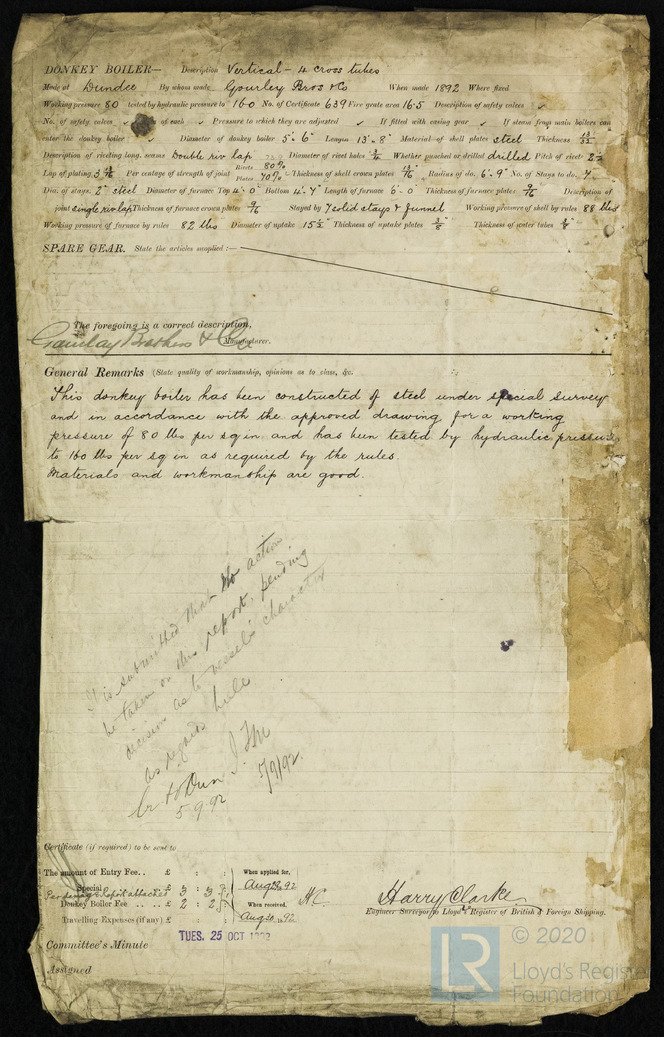 DONKEY BOILER— Description Vertical - 4 cross tubes
Made at Dundee By whom made Gourlay Bros & Co When made 1892 Where fixed
Working pressure 80 tested by hydraulic pressure to 160 No. of Certificate 639 Fire grate area 16.5 Description of safety valves ✓
No. of safety valves ✓ of each ✓ Pressure to which they are adjusted ✓ If fitted with easing gear ✓ If steam from main boilers can
enter the donkey boiler ✓ Diameter of donkey boiler 5'. 6" Length 13'. 8" Material of shell plates steel Thickness 13/32"
Description of riveting long. seams Double riv lap Diameter of rivet holes 3/4" Whether punched or drilled drilled Pitch of rivets 2
Lap of plating Per centage of strength of joint Rivets 80% Plates 70% Thickness of shell crown plates Radius of do. 6'. 9" No. of Stays to do. 7
Dia. of stays. 2" steel Diameter of furnace Top 4'. 0" Bottom 4'. 7" Length of furnace 6'. 0" Thickness of furnace plates 9/16" Description of
joint single riv lap Thickness of furnace crown plates 9/16" Stayed by 7 solid stays & funnel Working pressure of shell by rules 88 lbs
Working pressure of furnace by rules 82 lbs Diameter of uptake 15 1/2" Thickness of uptake plates 3/8" Thickness of water tubes 3/8"
SPARE GEAR. State the articles supplied :—
The foregoing is a correct description,
Gourlay Brothers & Co Manufacturer.
General Remarks (State quality of workmanship, opinions as to class, &c.
This donkey boiler has been constructed of steel under special survey
and in accordance with the approved drawing for a working
pressure of 80 lbs per sq in. and has been tested by hydraulic pressure
to 160 lbs per sq in as required by the rules.
Materials and workmanship are good.
It is submitted that no action
be taken on this report, pending
decision as to vessel's character
as regards hull
5.9.92
5/9/92.
Certificate (if required) to be sent to
The amount of Entry Fee.. £ : : When applied for,
Special £ 3 : 3 : Aug 92
Donkey Boiler Fee .. .. £ 2 : 2 : When received,
Travelling Expenses (if any) £ : : Aug 92
H.C.
Harry Clarke
Engineer Surveyor to Lloyd's Register of British & Foreign Shipping.
TUES. 25 OCT 1892
Committee's Minute
Assigned
LR
© 2020
Lloyd's Register
Foundation